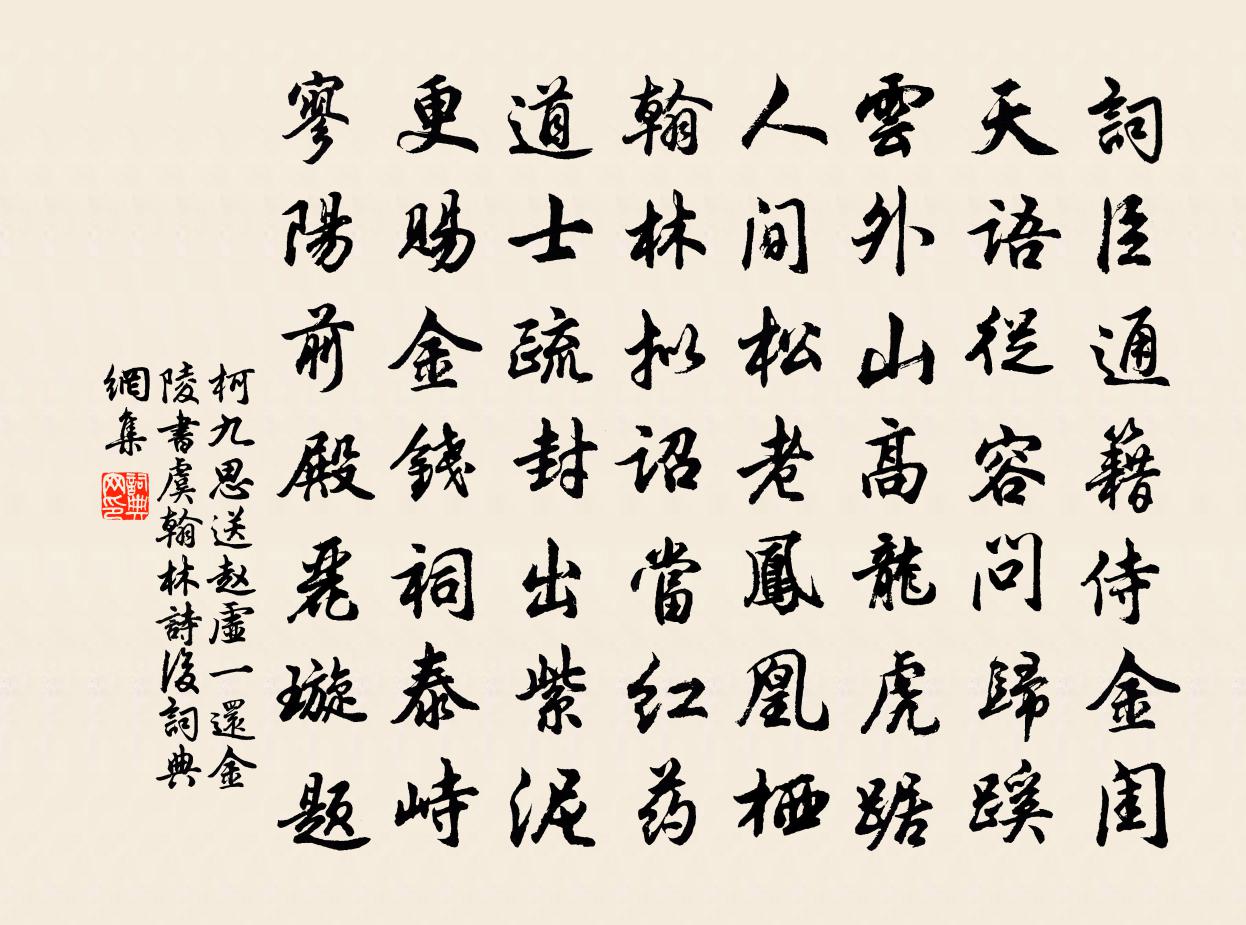 詞臣通籍侍金閨
天語從容問歸蹊
雲外山高龍虎踞
人间松老鳳凰栖
翰林拟詔當红药
道士疏封出紫泥
更賜金錢祠泰峙
寥陽前殿麗璇题
柯九思送赵虛一還金
陵書虞翰林詩後詞典
網集
詞典网印